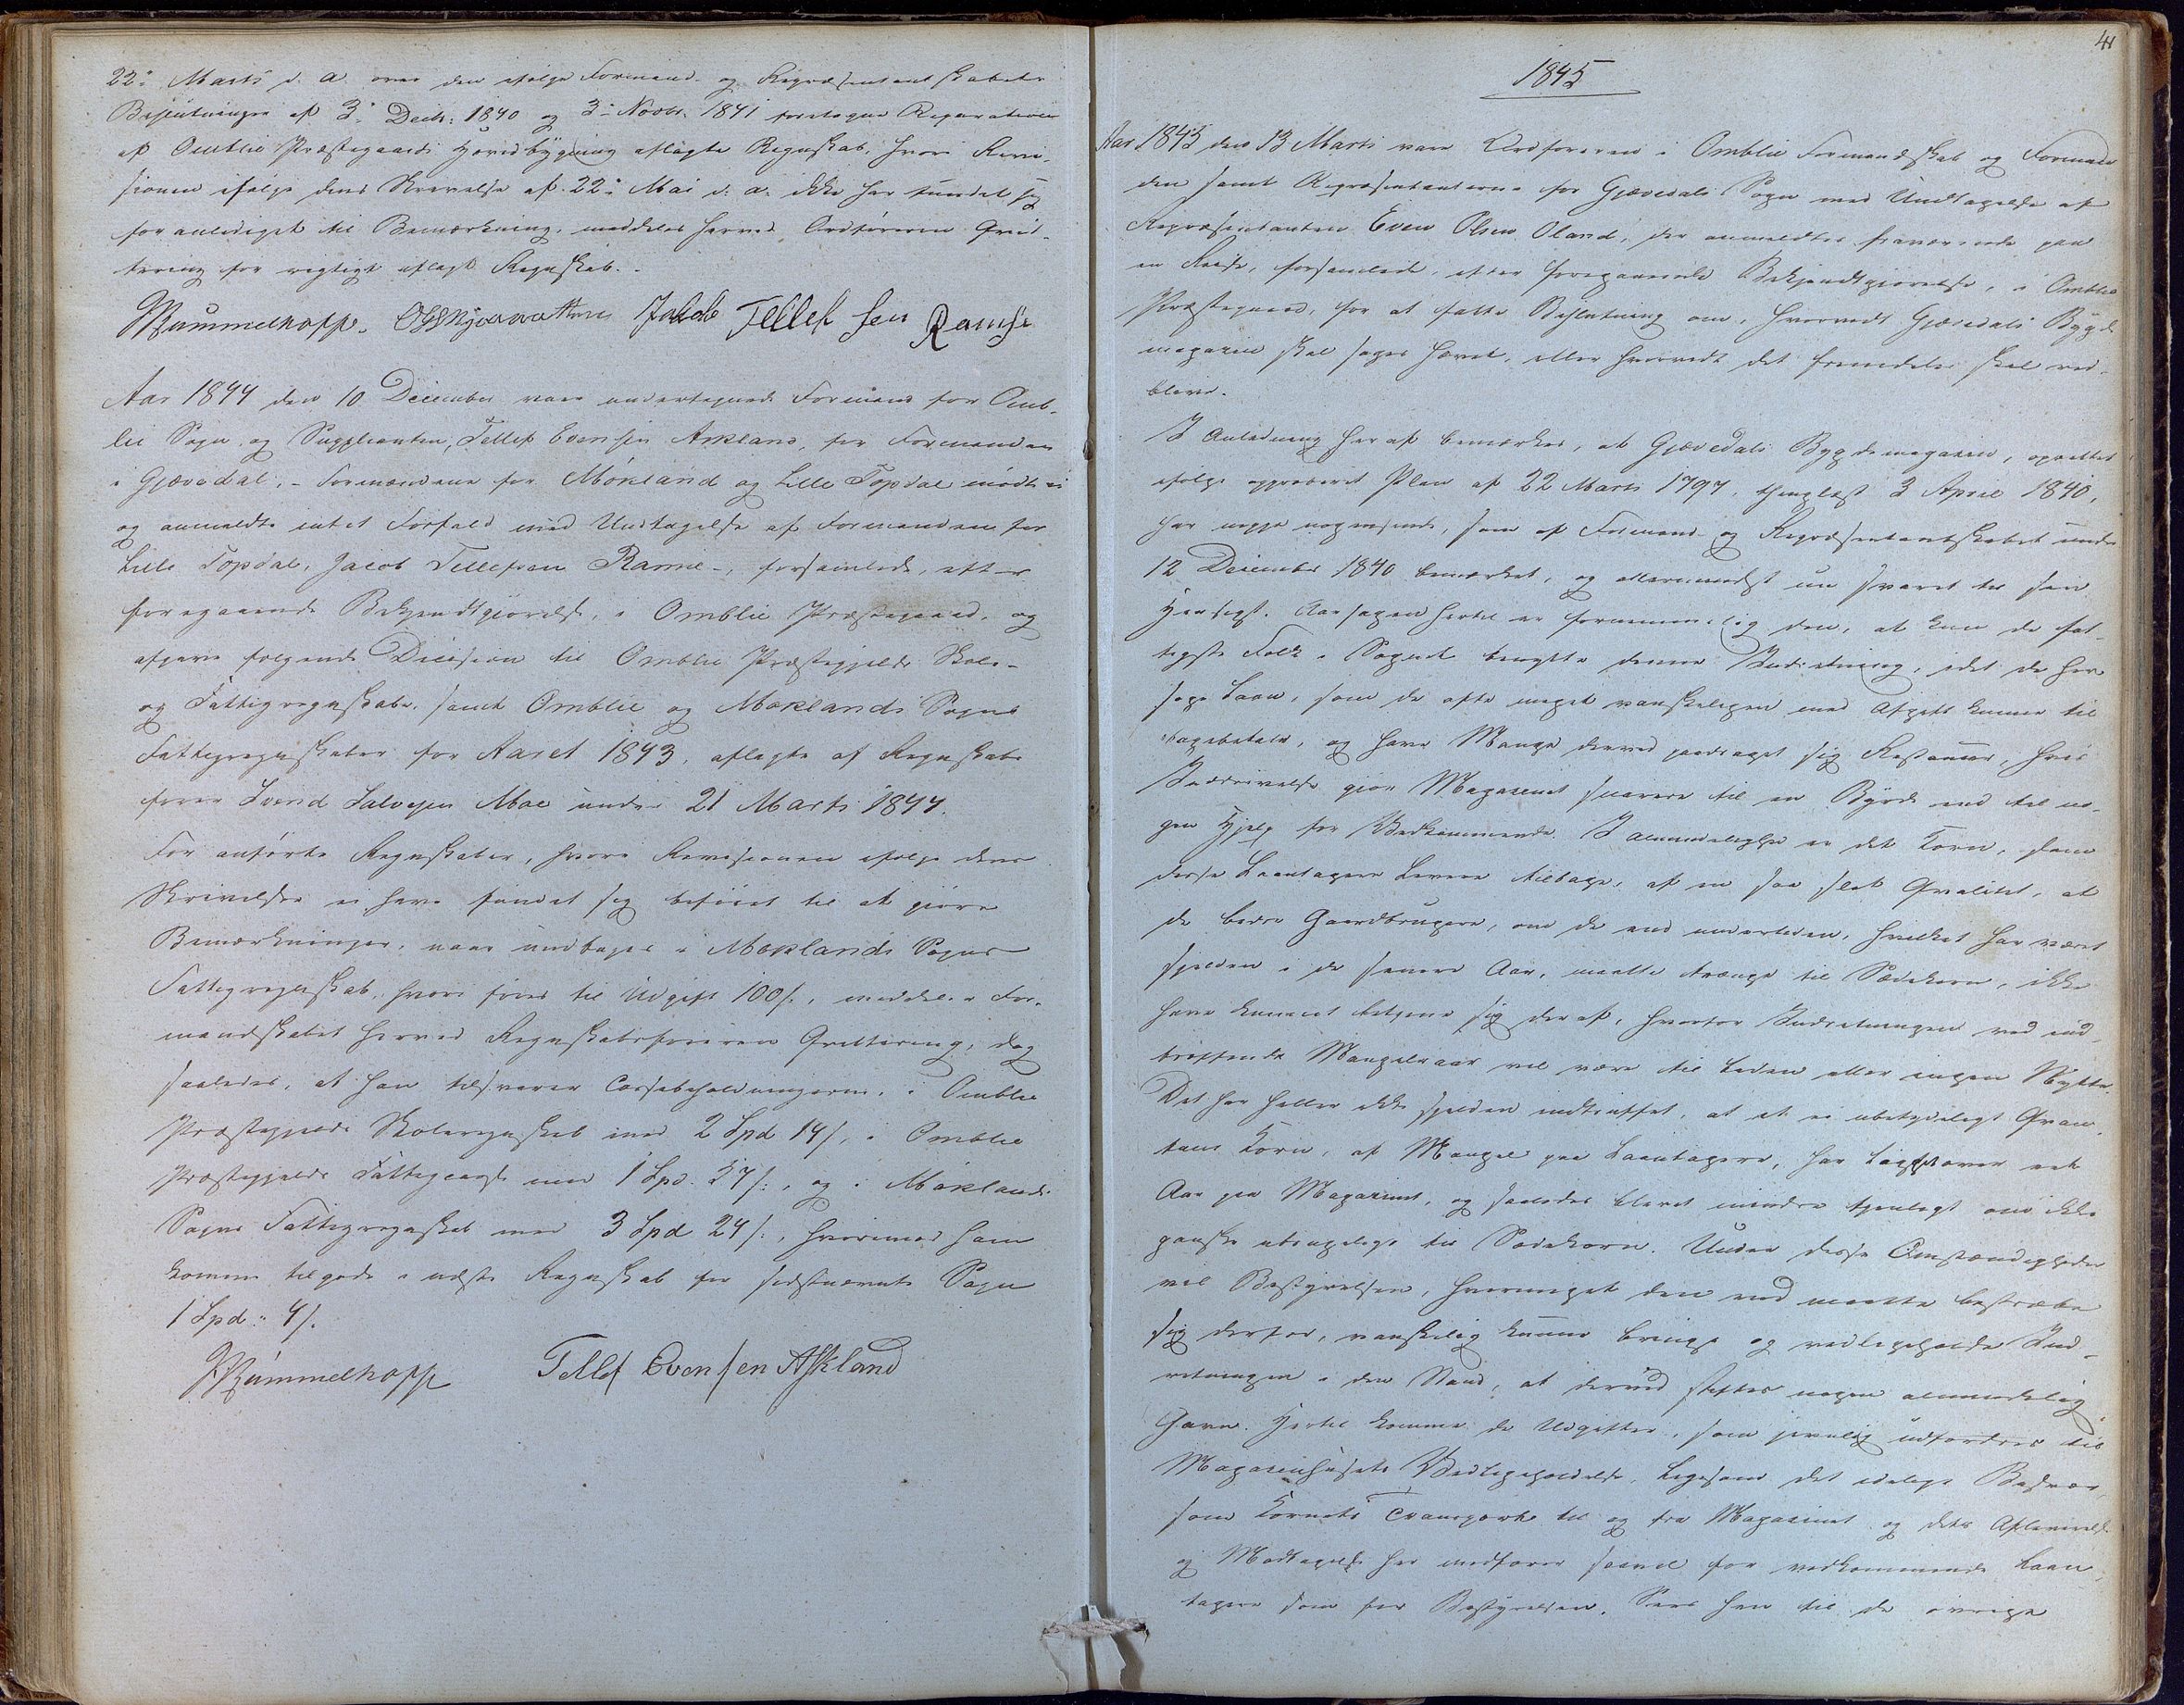 22de Marts d. a. over den ifølge Formand- og Repræsentantskabets
Beslutninger af 3die Decbr: 1840 og 3die Novbr. 1841 foretagne Reparation
af Omblie Præstegaards Hovedbygning aflagte Regnskab, hvori Revi-
sionen ifølge dens Skrivelse af 22de Mai d. a. ikke har fundet sig
foranlediget til Bemærkning, meddeles herved Ordføreren Qvit-
tering for rigtigt aflagt Regnskab.
JRummelhoff. Jakob Tellefsen Ramse
Aar 1844 den 10 December vare undertegnede Formænd for Omb-
lie Sogn, og Suppleanten, Tellef Evensen Askland, for Formanden
i Gjøvedal, - Formændene for Mökland og Lille Topdal mødte ei
og anmeldte intet Forfald med Undtagelse af Formanden for
Lille Topdal, Jacob Tellefsen Ramse -, forsamlede, efter
foregaaende Bekjendtgjørelse, i Omblie Præstegaard, og
afgave følgende Decision til Omblie Præstegjelds Skole-
og Fattigregnskab, samt Omblie og Moklands Sogns
Fattigregnskaber for Aaret 1843, aflagte af Regnskabs
fører Svend Salvesen Moe under 21 Marts 1844.
For anførte Regnskaber, hvori Revisionen ifølge dens
Skrivelse ei have fundet sig beføiet til at gjøre
Bemærkninger, naar undtages i Moklands Sogns
Fattigregnskab, hvori føres til Udgift 100 s., meddeler For-
mandskabet herved Regnskabsføreren Qvittering, dog
saaledes, at han tilsvarer Cassebeholdningerne, i Omblie
Præstegjelds Skoleregnskab med 2 Spd 14 s, i Omblie
Præstegjelds Fattigcasse med 1 Spd. 27 s:, og i Moklands
Sogns Fattigregnskab med 3 Spd 24 s:, hvorimod ham
komme tilgode i næste Regnskab for sidstnævnte Sogn
1 Spd: 4 s.
JRummelhoff Tellef Evensen Askland
41
1845
Aar 1845 den 13 Marts vare Ordføreren i Omblie Formandskab og Formæn-
den samt Repræsentanterne for Gjøvedals Sogn med Undtagelse af
Repræsentanten Even Olsen Oland, der anmeldtes fraværende paa
en Reise, forsamlede, efter foregaaende Bekjendtgjørelse, i Omblie
Præstegaard, for at fatte Beslutning om, hvorvidt Gjøvedals Bygde
magazin skal søges hævet, eller hvorvidt det fremdeles skal ved-
blive.
I Anledning heraf bemærkes, at Gjøvedals Bygdemagazin, oprettet
ifølge approberet Plan af 22 Marts 1797, thinglæst 3 April 1840,
har neppe nogensinde, som af Formand- og Repræsentantskabet under
12 December 1840 bemærket, og allermindst nu svaret til sin
Hensigt. Aarsagen hertil er fornemmelig den, at kun de fat-
tigste Folk i Sognet benytte denne Indretning, idet de her
søge Laan, som de ofte meget vanskeligen med Afgift kunne til-
bagebetale, og have Mange derved paadraget sig Restancer, hvis
Inddrivelse gjør Magazinet snarere til en Byrde end til no-
gen Hjelp for Vedkommende. I Almindelighed er det Korn, som
disse Laantagere levere tilbage, af en saa slet Qvalitet, at
de bedre Gaardbrugere, om de end undertiden, hvilket har været
sjelden i de senere Aar, maatte trænge til Sædekorn, ikke
have kunnet betjene sig deraf, hvorfor Indretningen ved ind-
træffende Mangelsaar vil være til liden eller ingen Nytte.
Det har heller ikke sjelden indtruffet, at et ei ubetydeligt Qvan-
tum Korn, af Mangel paa Laantagere, har ligget over et
Aar paa Magazinet, og saaledes blevet mindre tjenligt om ikke
ganske utjenligt til Sædekorn. Under disse Omstændigheder
vil Bestyrelsen, hvormeget den end maatte bestræbe
sig derfor, vanskelig kunne bringe og vedligeholde Ind-
retningen i den Stand, at derved stiftes nogen almindelig
Gavn. Hertil komme de Udgifter, som jevnlig udfordres til
Magazinhusets Vedligeholdelse, ligesom det idelige Besvær,
som Kornets Transport til og fra Magazinet og dets Aflevering
og Modtagelse her medfører saavel for vedkommende Laan-
tagere som for Bestyrelsen. Sees hen til de øvrige